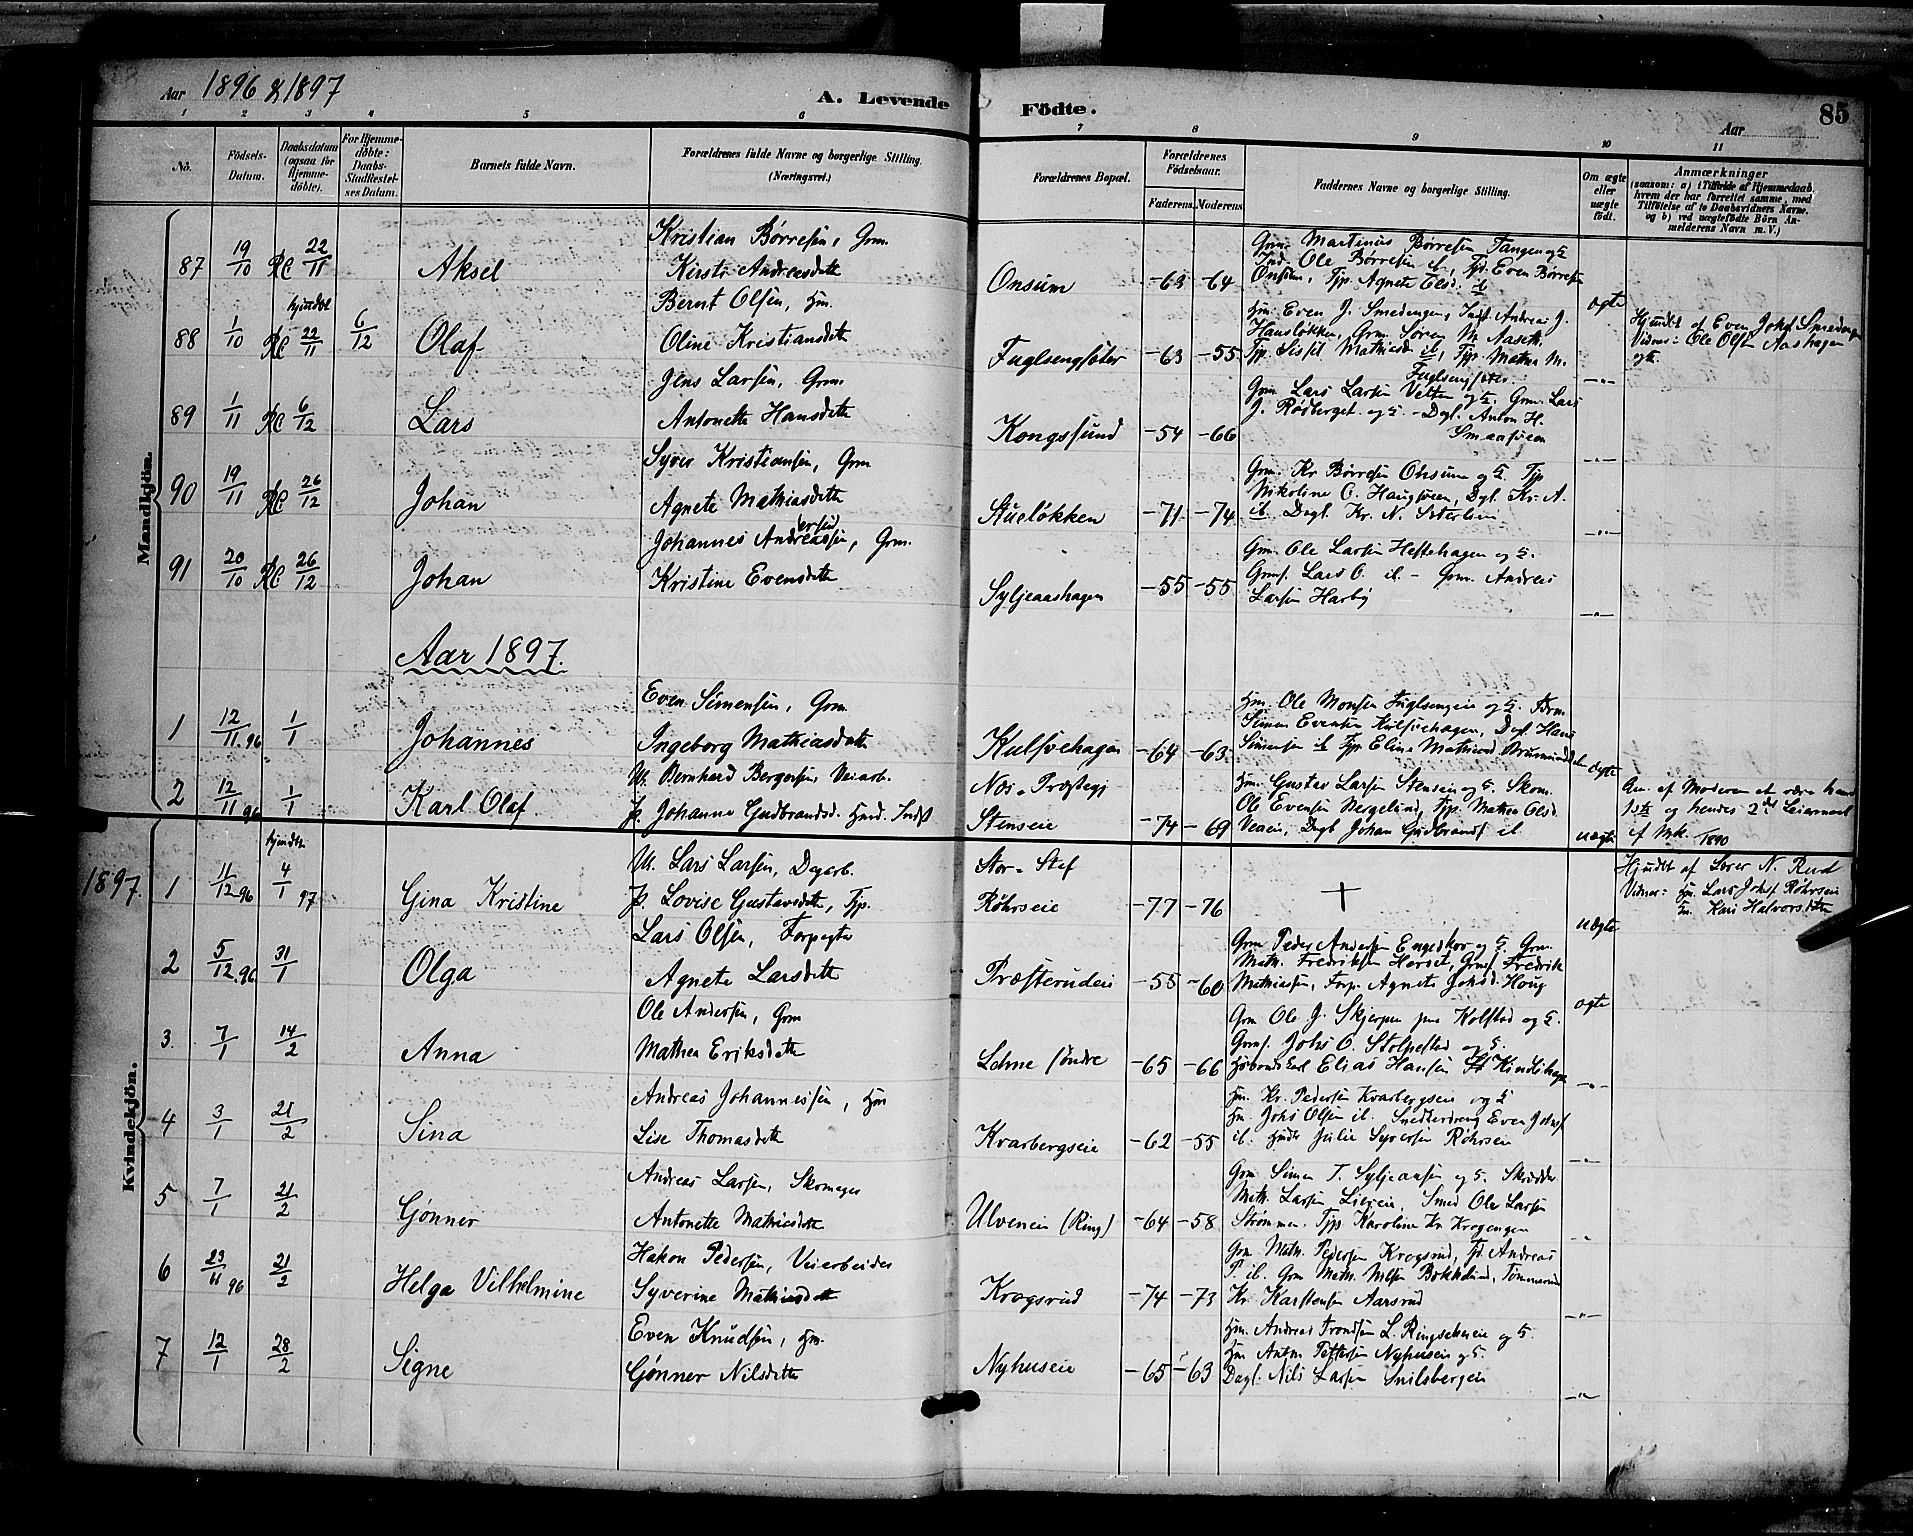 Aar 1896 & 1897
A. Levende Födte.
Aar
85
1 2 3 4 5 6 7 8 9 10 11
No.
Födsels-Datum.
Daabsdatum (ogsaa for Hjemme-döbte).
For Hjemme-döbte: Daabs-Stadfæstel-ses Datum.
Barnets fulde Navn.
Forældrenes fulde Navne og borgerlige Stilling. (Næringsvei.)
Forældrenes Bopæl.
Forældrenes Födselsaar.
Faderens Moderens
Faddernes Navne og borgerlige Stilling.
Om ægte eller uægte født.
Anmærkninger
(saasom: a) i Tilfælde af Hjemmedaab, hvem der har forrettet samme, med Tilföielse af to Daabsvidners Navne, og b) ved uægtefödte Börn An-melderens Navn m. V.)
Mandkjön.
87 19/10 22/11 Aksel
Kristian Börresen, Grm.
Kirsti Andreasdtte
Onsum -63 -64
Grm. Martinus Börresen Tangen og
Ind. Ole Börresen ib, Even Börresen
Onsum, Tjp Agnete Olsd. ib
ægte
88 1/10 hjemdöbt 22/11 6/12 Olaf
Bernt Olsen, Hm.
Oline Kristiansdtte
Fuglsengsæter -63 -55
Hm. Even J. Smedengen, Andreas J.
Hansløkken, Grm. Søren M. Aaseth
Tjp. Sissil Mathiesd ib, Tjp. Mathea M.
Fuglsengsæter
Hjemdbt af Even Johs Smedengen
Vidner: Ole Olsen Aashagen
89 1/11 6/12 Lars
Jens Larsen, Grm.
Antonette Hansdtte
Kongssund -54 -66
Grm. Lars Larsen Velten og Grm. Lars
J. Rødberget og - Dgl. Anton H.
Smaasveen
90 19/11 26/12 Johan
Syver Kristiansen, Grm
Agnete Mathiasdtte
Stueløkken -71 -74
Grm. Kr Börresen Onsum og Tjp
Nikoline O. Haugsveen, Dgl. Kr. A.
ib. Dagl. Kr. N.
91 20/10 26/12 Johan
Johannes Andreassen, Grm.
Kristine Evensdtte
Syljeaashagen -55 -55
Grm. Ole Larsen Heftehagen og
Grmf. Lars O. ib. - Grm. Andreas
Larsen Harby
Aar 1897.
1 12/11.96 1/1 Johannes
Even Simensen, Grm.
Ingeborg Mathiasdtte
Kulsvehagen -64 -63
Hm. Ole Monsen Fuglsengeie og
Simen Evensen Kulsvehagen, Dgl. Hans
Simensen ib Tjp Eline Mathiesd
ægte
2 12/11 96 1/1 Karl Olaf
U. Bernhard Bergersen, Veiarb.
P. Johanne Gudbrandsd. Indst
Nes Præstegj
Stenseie -74 -69
Hm. Gustav Larsen Stenseie og Skom.
Ole Evensen Negelund, Tjp. Mathea Olsd.
Veaeie, Dagl Johan Gudbrands ib
uægte
An. af Moderen at være hans
1ste og hendes 2det Leiermaal
1890
Kvindekjön.
1897.
1 11/12 96 hjemdöbt 4/1 97 Gina Kristine
U. Lars Larsen, Dagarb.
P. Lovise Gustavsdtte, Tjp.
Røhrseie -77 -76
+
uægte
Hjemdbt af Lærer N. Rud
Vidner: Hm. Lars Johs Røhrseie
Kari Halvorsdtte
2 5/12.96 31/1 Olga
Lars Olsen, Forpagter
Agnete Larsdtte
Præsterudeie -58 -60
Grm Peder Andersen Engeskov og Grm.
Math. Fredriksen Herset, Grmf Fredrik
Mathiassen, Forp. Agnete Johsd. Houg
ægte
3. 7/1 14/2 Anna
Ole Andersen, Grm
Mathea Eriksdtte
Lohne söndre -65 -66
Grm Ole J. Skjerpen Kolstad og
Grmf. Johs O. Stolpestad og
Elias Hansen
4 3/1 21/2 Sina
Andreas Johannessen, Hm
Lise Thomasdtte
Kvarbergseie -62 -55
Hm. Kr. Pedersen Kvarbergseie og
Hm. Johs Olsen ib. Snedkerdreng Even Johs
ib. Julie Syversen Røhrseie
5 7/1 21/2 Gønner
Andreas Larsen, Skomager
Antonette Mathiesdtte
Ulveneie (Ring) -64 -58
Grm Simen T. Syljeaasen og Skrædder
Math. Larsen Lieseie, Smed Ole Larsen
Strømmen, Tjp. Karoline Kr. Krogengen
6 23/11 96 21/2 Helga Vilhelmine
Hakon Pedersen, Veiarbeider
Syverine Mathiesdtte
Krogsrud -74 -73
Grm. Math. Pedersen Krogsrud, Andreas
P. ib. Grm Math. Nilsen Bækkelund, Tømmermd
Kr. Karstensen Aarsrud
7 12/1 28/2 Signe
Even Knudsen, Hm.
Gønner Nilsdtte
Nyhuseie -65 -63
Hm. Andreas Trondsen L. Ringsakereie og
Hm Antn. Pettersen Nyhuseie og
Dagl. Nils Larsen Snilsbergeie